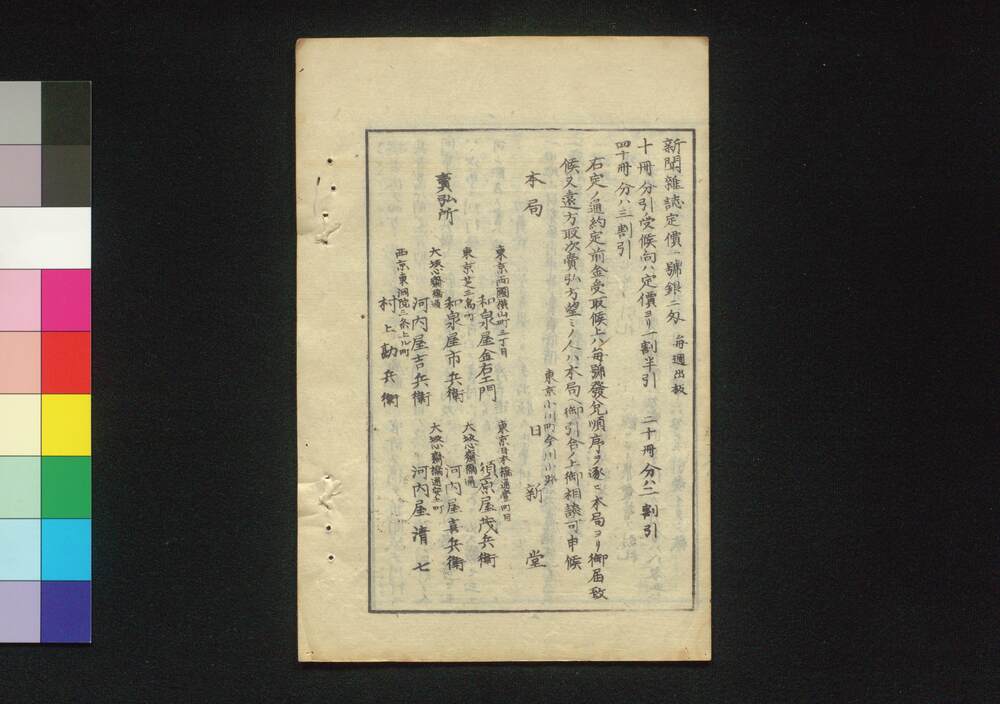 新聞雜誌定價一號銀二匁 每週出板
十冊分引受候向ハ定價ヨリ一割半引 二十冊分ハ二割引
四十冊分ハ三割引
右定ノ通約定前金受取候上ハ每號發兌順序ヲ逐ヒ本局ヨリ御届致
候又遠方取次賣弘方望ミノ人ハ本局ヘ御引合ノ上御相談可申候
東京小川町今川小路
本局 日新堂
東京両國横山町三丁目
和泉屋金右エ門
東京日本橋通壹丁目
須原屋茂兵衛
賣弘所
東京芝三島町
和泉屋市兵衛
大坂心齋橋通
河内屋喜兵衛
大坂心齋橋通
河内屋吉兵衛
大坂心齋橋通安土町
河内屋清七
西京東洞院三条上ル町
村上勘兵衛